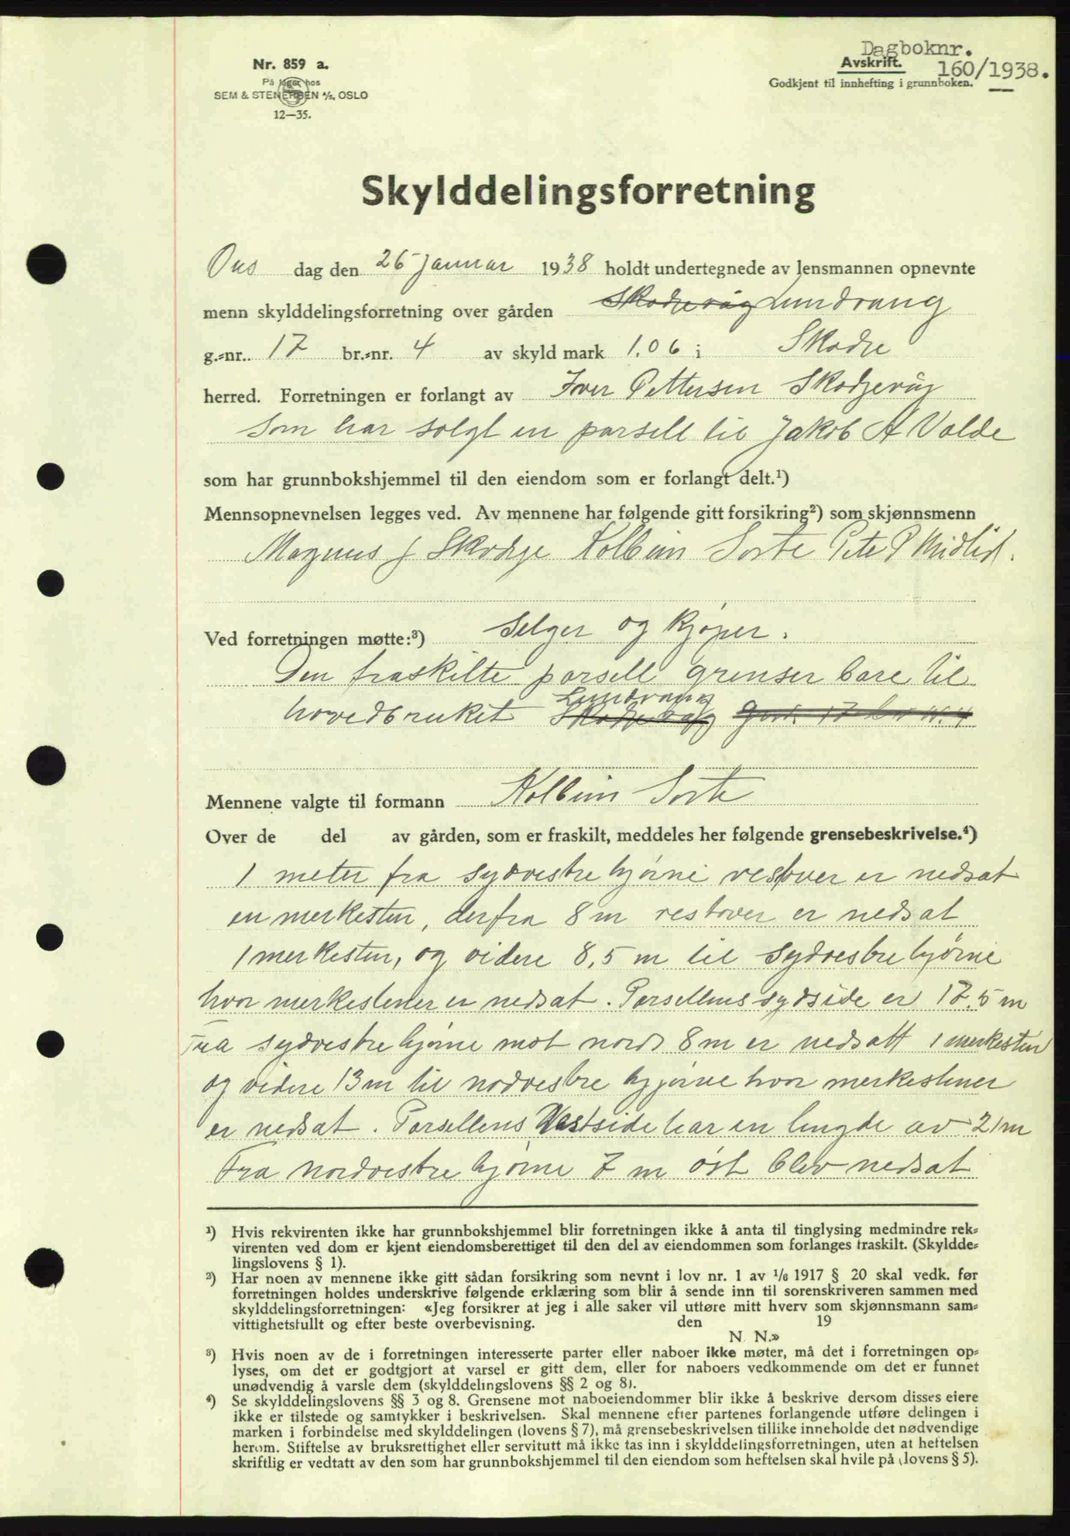 Dagboknr.
Nr. 859 a.
Avskrift. 160/1938.
På lager hos
Godkjent til innhefting i grunnboken.
SEM & STENERSEN A/S, OSLO
12—35.
Skylddelingsforretning
Ons dag den 26 januar 1938 holdt undertegnede av lensmannen opnevnte
menn skylddelingsforretning over gården Skodjevåg Lundvang
g.-nr. 17 br.-nr. 4 av skyld mark 1.06 i Skodje
herred. Forretningen er forlangt av Iver Pettersen Skodjevåg
som har solgt en parsell til Jakob A Valde
som har grunnbokshjemmel til den eiendom som er forlangt delt.¹)
Mennsopnevnelsen legges ved. Av mennene har følgende gitt forsikring²) som skjønnsmenn
Magnus J Skodje Kolbein Sorte Peter P Midlid.
Ved forretningen møtte:³) Selger og kjøper.
Den fraskilte parsell grenser bare til
Lundvang
hovedbruket Skodjevåg gnr. 17 br n. 4
Mennene valgte til formann Kolbein Sorte
Over de del av gården, som er fraskilt, meddeles her følgende grensebeskrivelse.⁴)
1 meter fra sydvestre hjørne vestover er nedsat
en merkesten, derfra 8 m vestover er nedsat
1 merkesten, og videre 8,5 m til sydvestre hjørne
hvor merkestener er nedsat. Parsellens sydside er 17.5 m
Fra sydvestre hjørne mot nord 8 m er nedsatt 1 merkesten
og videre 13 m til nodvestre hjørne hvor merkestener
er nedsat. Parsellens Vestside har en lengde av 21 m
Fra nordvestre hjørne 7 m øst blev nedsat
¹) Hvis rekvirenten ikke har grunnbokshjemmel blir forretningen ikke å anta til tinglysing medmindre rek-
virenten ved dom er kjent eiendomsberettiget til den del av eiendommen som forlanges fraskilt. (Skyldde-
lingslovens § 1).
²) Har noen av mennene ikke gitt sådan forsikring som nevnt i lov nr. 1 av 1/6 1917 § 20 skal vedk. før
forretningen holdes underskrive følgende erklæring som blir å sende inn til sorenskriveren sammen med
skylddelingsforretningen: «Jeg forsikrer at jeg i alle saker vil utføre mitt hverv som skjønnsmann sam-
vittighetsfullt og efter beste overbevisning. den 19
N. N.»
³) Hvis noen av de i forretningen interesserte parter eller naboer ikke møter, må det i forretningen op-
lyses, om det er godtgjort at varsel er gitt dem, eller for naboers vedkommende om det er funnet
unødvendig å varsle dem (skylddelingslovens §§ 2 og 8).
⁴) Se skylddelingslovens §§ 3 og 8. Grensene mot naboeiendommer blir ikke å beskrive dersom disses eiere
ikke er tilstede og samtykker i beskrivelsen. Skal mennene efter partenes forlangende utføre delingen i
marken i forbindelse med skylddelingen (lovens § 7), må grensebeskrivelsen tillike inneholde det nødvendige
herom. Stiftelse av bruksrettighet eller servitutt må ikke tas inn i skylddelingsforretningen, uten at heftelsen
skriftlig er vedtatt av den som har grunnbokshjemmel til den eiendom som heftelsen skal hvile på (lovens § 5).